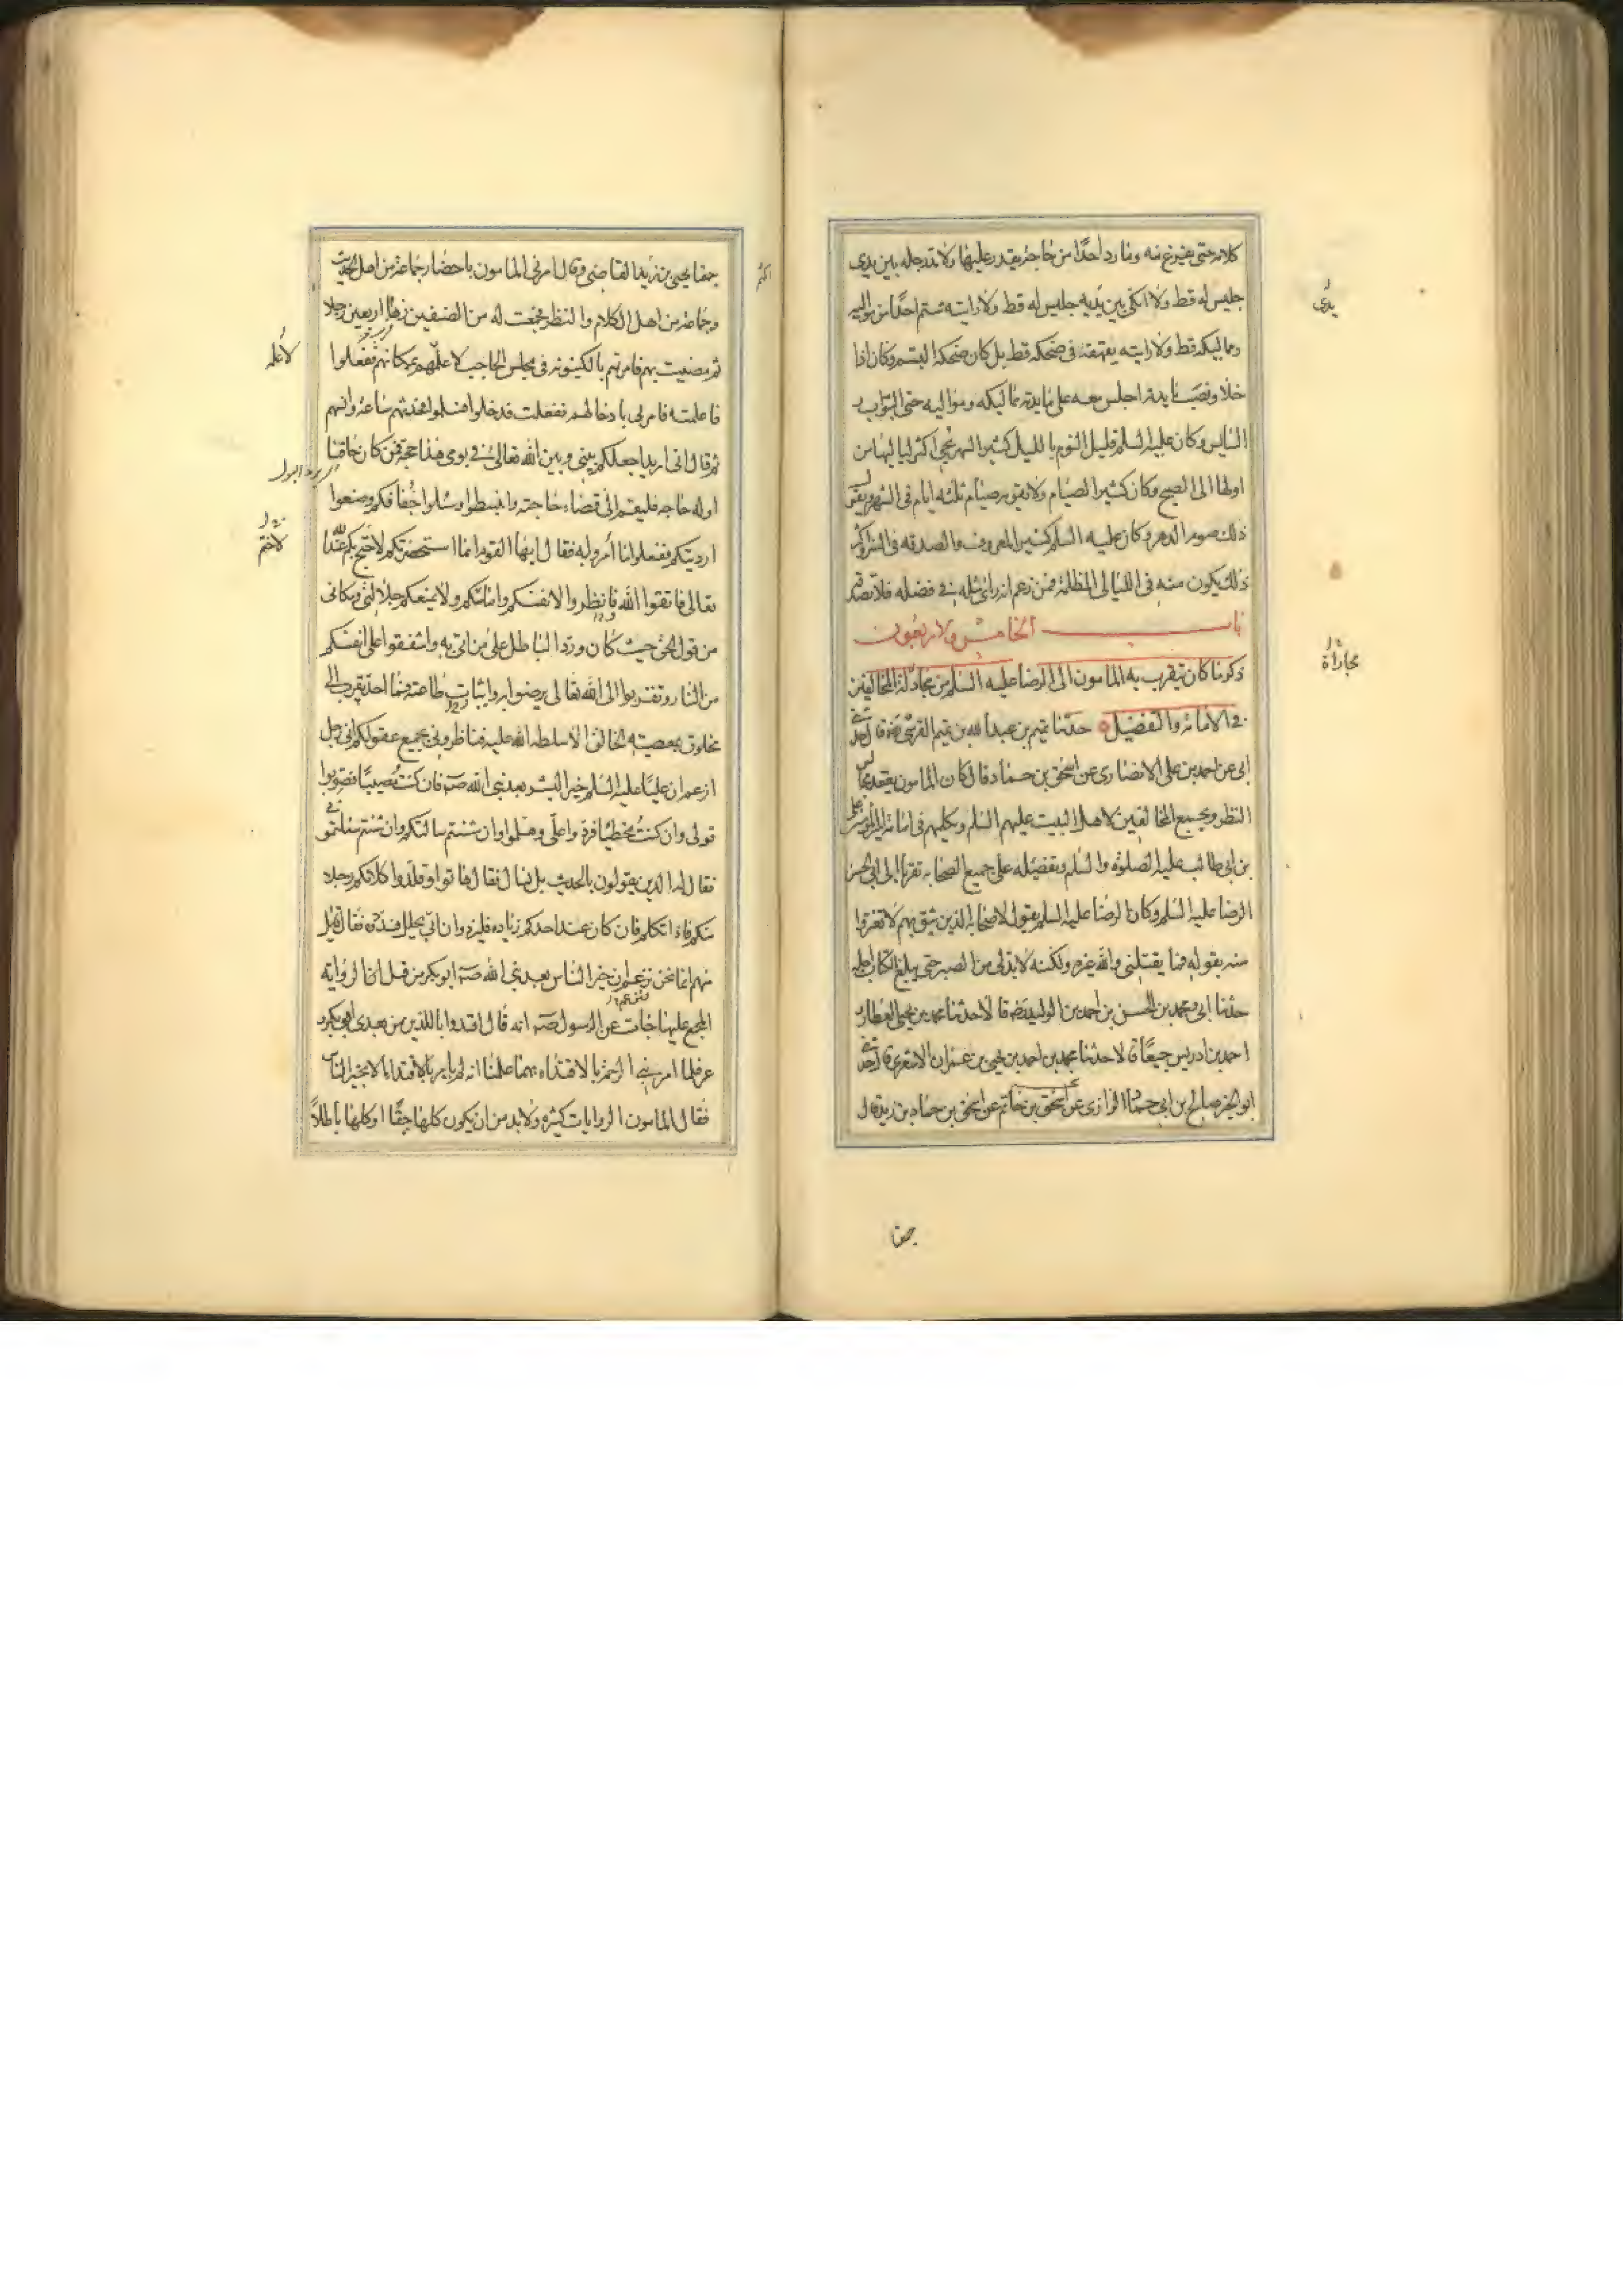 كلامه حتى يفرغ منه وما رد احدًا من حاجة يقدر عليها ولا مد رجله بين يدى
جليس له قط ولا اتكى بين يديه جليس له قط ولا رايته شتم احدًا من مواليه
ومماليكه قط ولا رايته يقهقه فى ضحكه قط بل كان ضحكه التبسم وكان اذا
خلا ونصب مايدته اجلس معه على مايدته مماليكه ومواليه حتى البواب و
السايس وكان عليه السلم قليل النوم بالليل كثير السهر يحيى اكثر لياليه من
اولها الى الصبح وكان كثير الصيام ولا يفوته صيام ثلثه ايام فى الشهر ويقول
ذلك صوم الدهر وكان عليه السلم كثير المعروف والصدقه فى السر واكثر
ذلك يكون منه فى الليالى المظلمة فمن زعم انه راى مثله فى فضله فلا تصدقه
باب الخامس والاربعون
ذكر ما كان يتقرب به المامون الى الرضا عليه السلم من مجادلة المخالفين
فى الامامة والتفضيل حدثنا تميم بن عبد الله بن تميم القرشى رضه قال حدثنى
ابى عن احمد بن على الانصارى عن اسحق بن حماد قال كان المامون يعقد مجالس
النظر ويجمع المخالفين لاهل البيت عليهم السلم ويكلمهم فى امامة امير المؤمنين على
بن ابى طالب عليه الصلوة والسلم وتفضيله على جميع الصحابه تقربا الى ابى الحسن
الرضا عليه السلم وكان الرضا عليه السلم يقول لاصحابه الذين يثق بهم لا تغتروا
منه بقوله فما يقتلنى والله غيره ولكنه لابد لى من الصبر حتى يبلغ الكتاب اجله
حدثنا ابى ومحمد بن الحسن بن احمد بن الوليد رضه قالا حدثنا محمد بن يحيى العطار و
احمد بن ادريس جميعًا قالا حدثنا محمد بن احمد بن يحيى بن عمران الاشعرى قال حدثنى
ابو الخير صالح بن ابى حماد الرازى عن اسحق بن حاتم عن اسحق بن حماد بن زيد قال
يدى
مجاراة
جمعنا
جمعنا يحيى بن زيد القاضى وقال امرنى المامون باحضار جماعة من اهل الحديث
وجماعة من اهل الكلام والنظر فجمعت له من الصنفين زهاء اربعين رجلا
ثم مضيت بهم فامرتهم بالكينونه فى مجلس الحاجب لاعلمهم بمكانهم ففعلوا
فاعلمته فامرنى بادخالهم ففعلت فدخلوا فسلموا فحدثهم ساعة وانسهم
ثم قال انى اريد اجعلكم بينى وبين الله تعالى فى يومى هذا حجة فمن كان حاقنا
اوله حاجه فليقم الى قضاء حاجته وانبسطوا وسلوا خفافكم وضعوا
ارديتكم ففعلوا ما أمروا به فقال ايها القوم انما استحضرتكم لاحتج بكم عند الله
تعالى فاتقوا الله وانظروا لانفسكم وامامكم ولا يمنعكم جلالتى ومكانى
من قول الحق حيث كان ورد الباطل على من اتى به واشفقوا على انفسكم
من النار وتقربوا الى الله تعالى برضوانه وايثار طاعته فما احد تقرب الى
مخلوق بمعصيته الخالق الا سلطه الله عليه فناظرونى بجميع عقولكم انى رجل
ازعم ان عليًا عليه السلم خير البشر بعد نبى الله صه فان كنت مصيبًا فصوبوا
قولى وان كنت مخطيًا فردوا على وهلموا وان شئتم سالتكم وان شئتم سئلتمونى
فقال له الذين يقولون بالحديث بل نسال فقال هاتوا وقلدوا كلامكم رجلا
منكم فاذا تكلم فان كان عند احدكم زيادة فليزد وان اتى بخلل فسددوه فقال قائل
منهم انما نحن نزعم ان خير الناس بعد نبى الله صه ابو بكر من قبل ان الرواية
المجمع عليها جات عن الرسول صه انه قال اقتدوا باللذين من بعدى ابو بكر و
عمر فلما امر نبى الرحمة بالاقتداء بهما علمنا انه لم يامر بالاقتداء الا بخير الناس
فقال المامون الروايات كثيره ولابد من ان يكون كلها حقًا او كلها باطلاً
اكثم
لأعلمه
لاحتج